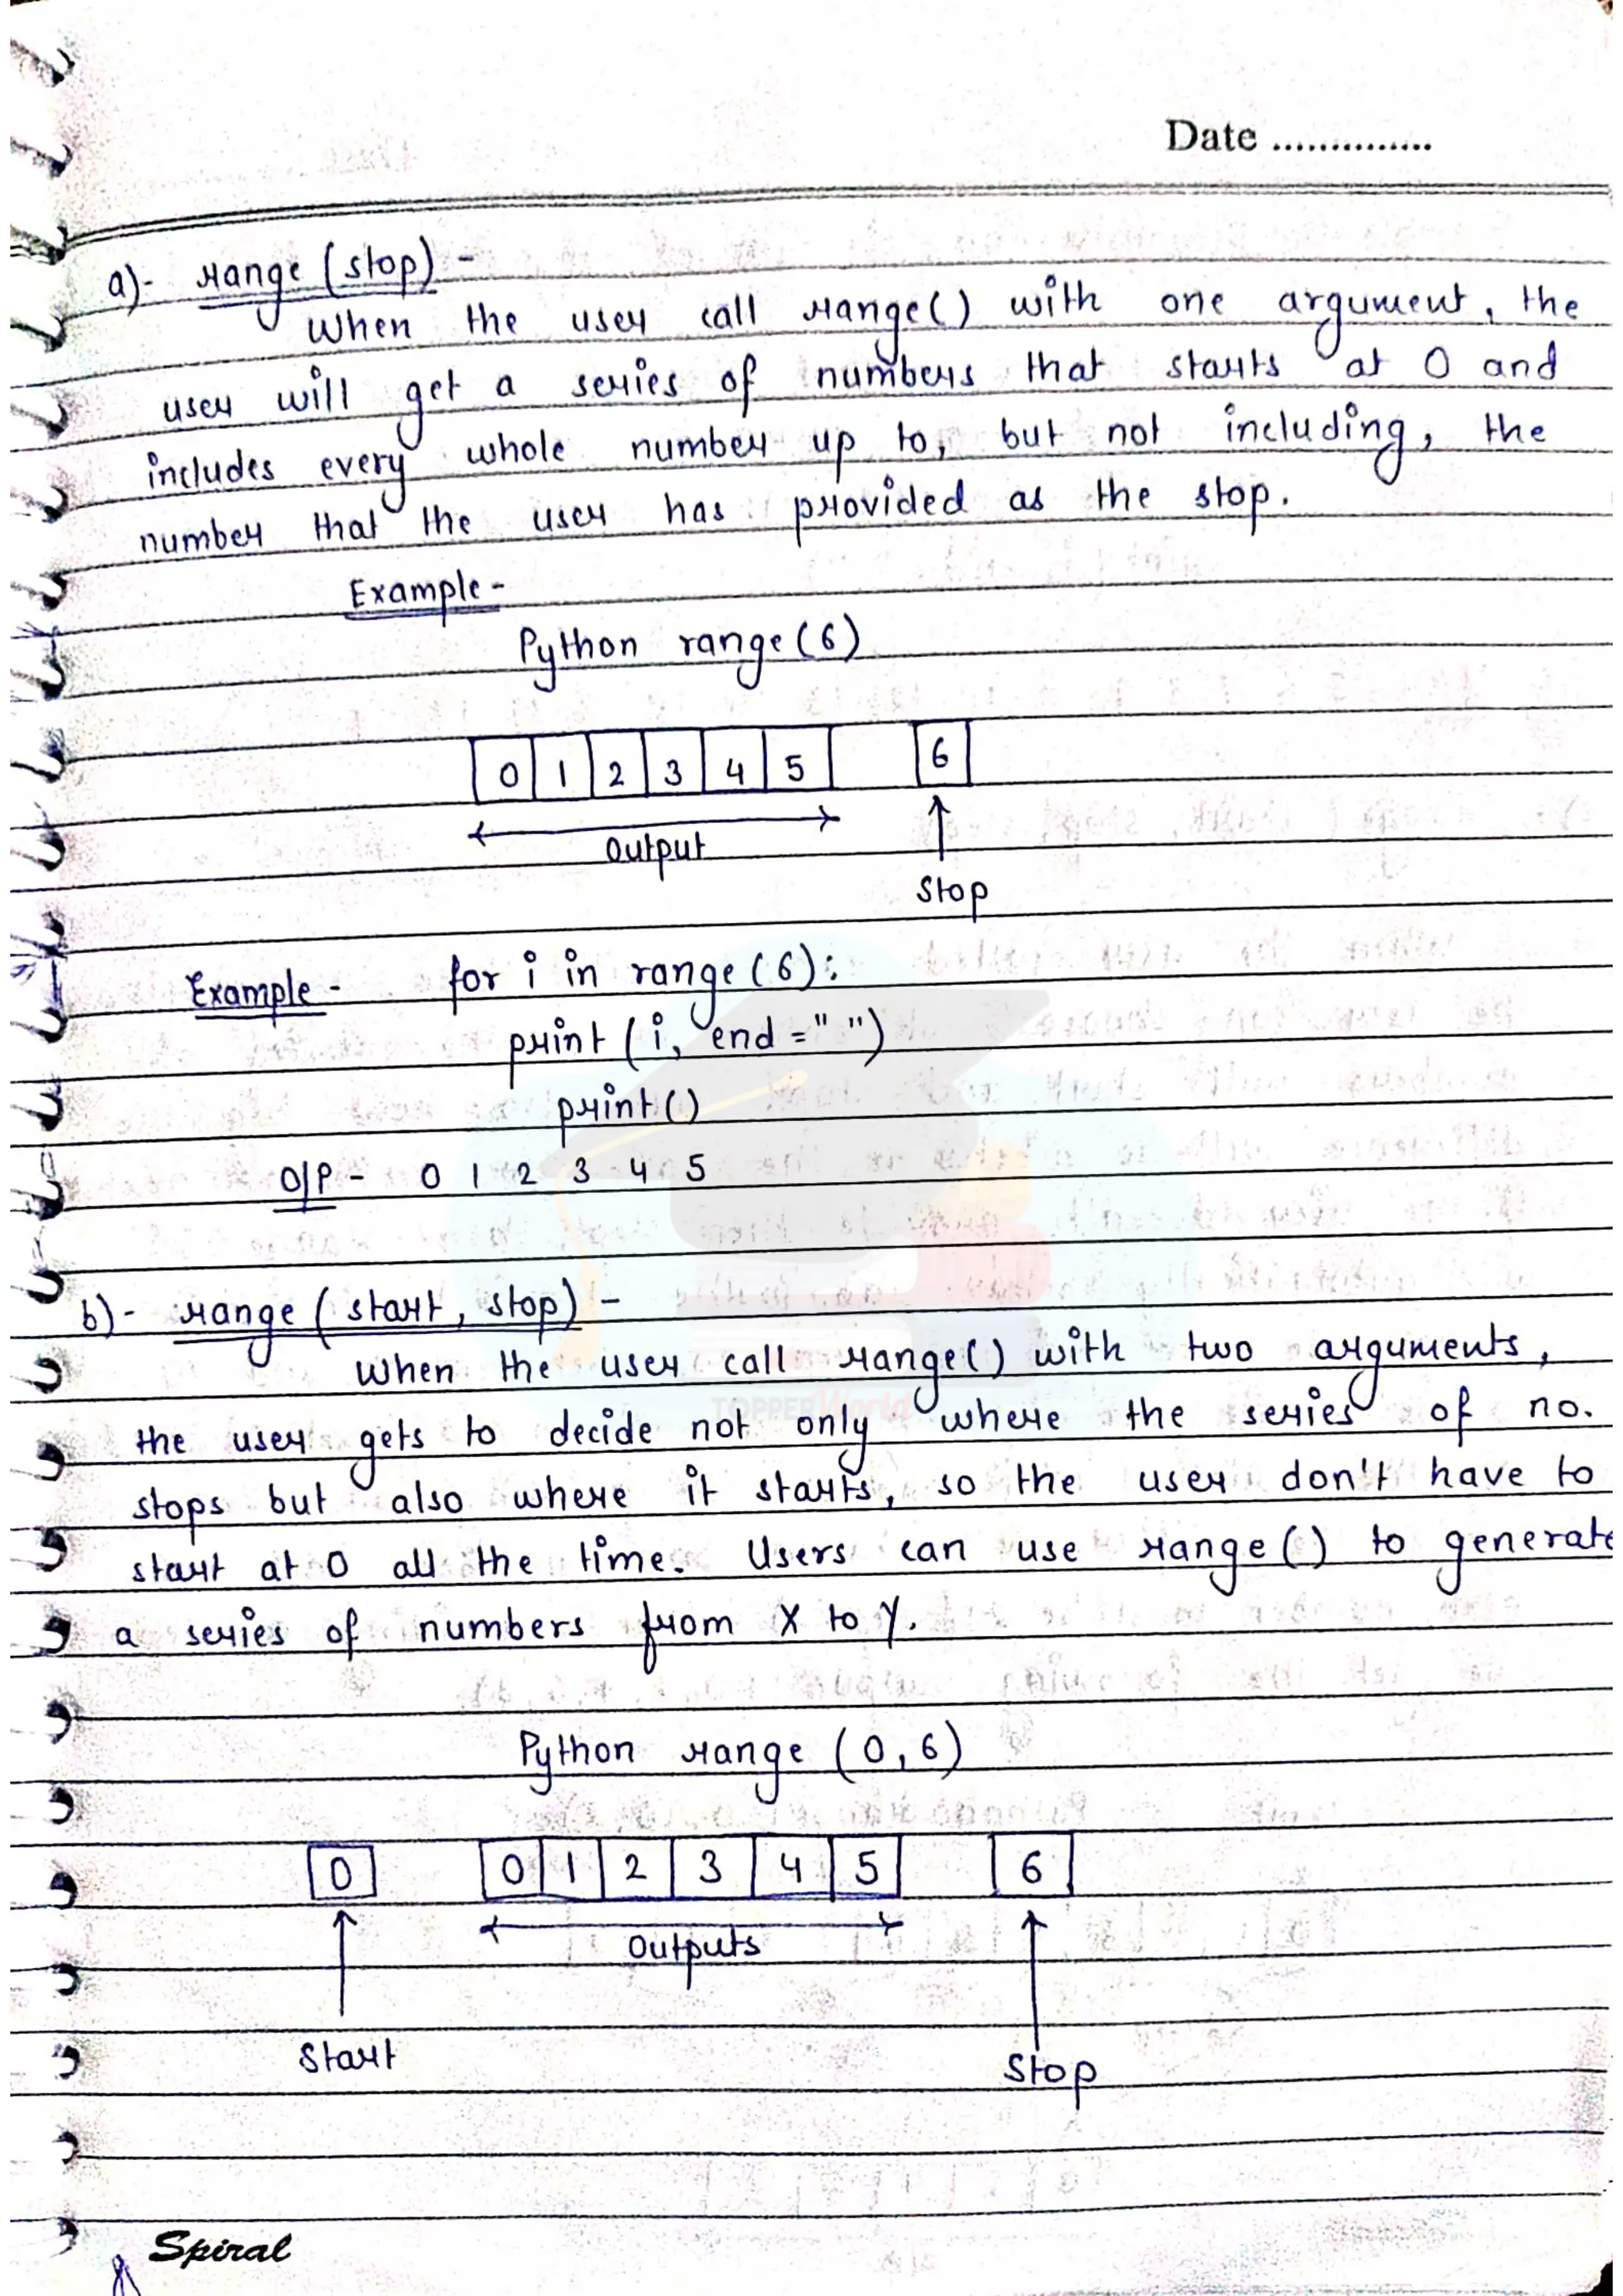 Date ..............
a)- range (stop) -
When the user call range() with one argument, the
user will get a series of numbers that starts at 0 and
includes every whole number up to, but not including, the
number that the user has provided as the stop.
Example -
Python range(6)
0 1 2 3 4 5 6
Output
Stop
Example - for i in range(6):
print (i, end =" ")
print()
O/P - 0 1 2 3 4 5
b)- range ( start, stop) -
When the user call range() with two arguments,
TOPPERWorld
the user gets to decide not only where the series of no.
stops but also where it starts, so the user don't have to
start at 0 all the time. Users can use range() to generate
a series of numbers from X to Y.
Python range (0,6)
0 0 1 2 3 4 5 6
Outputs
Start
Stop
Spiral